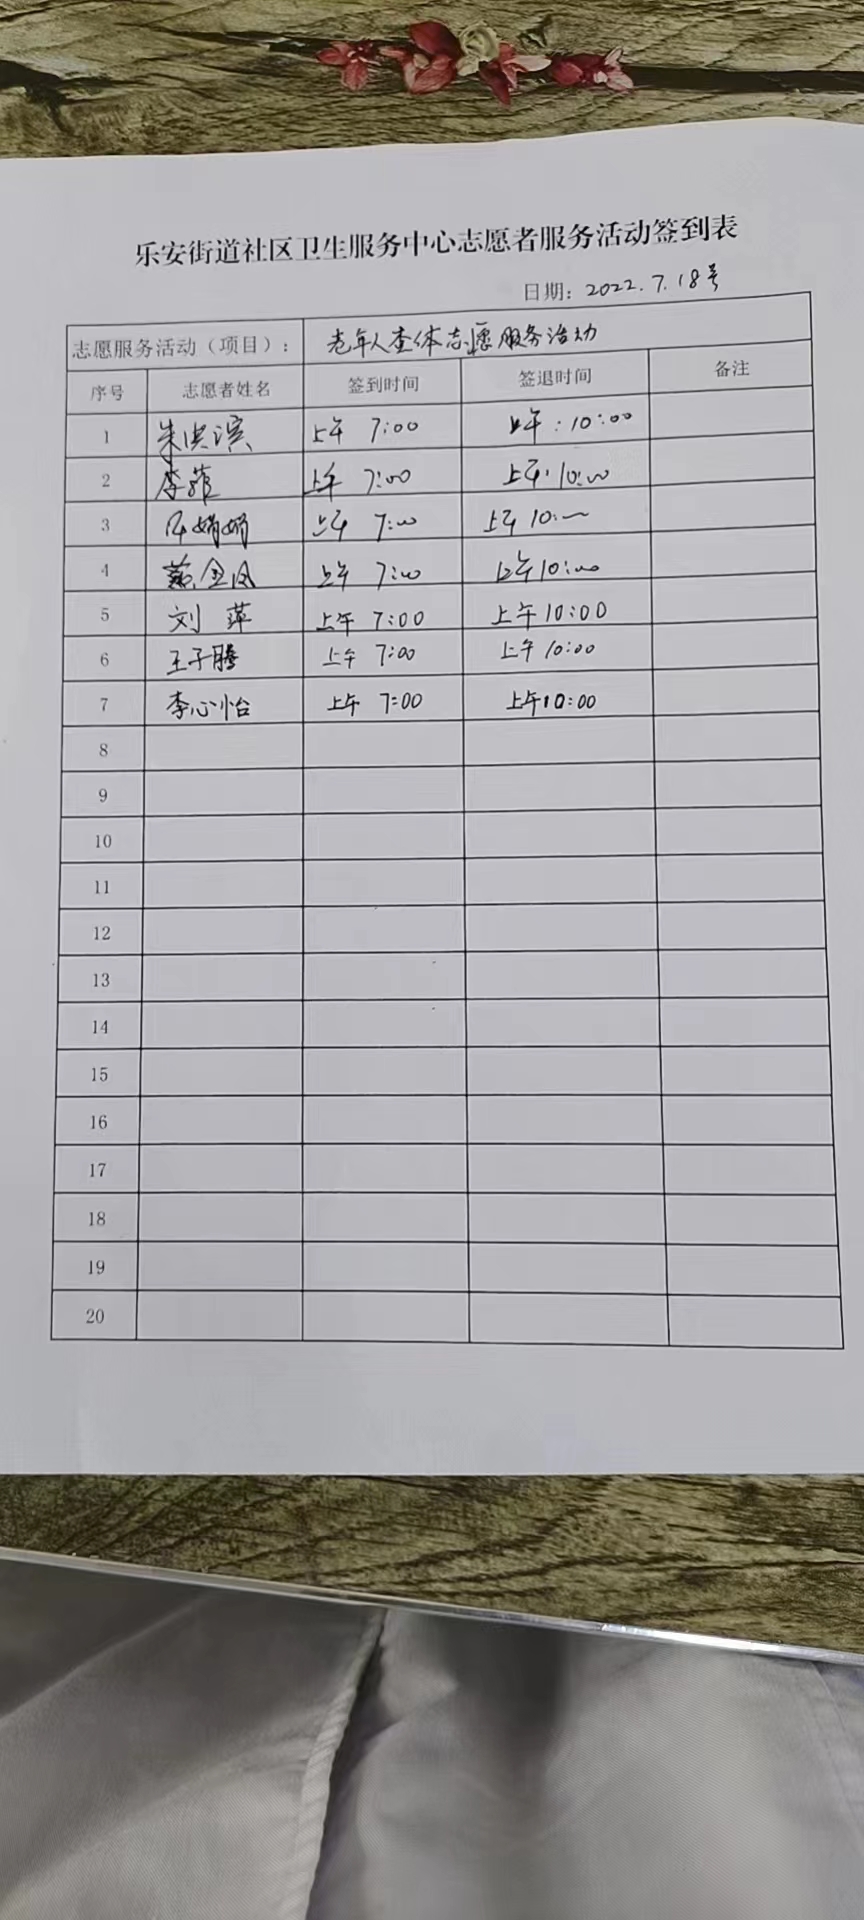 乐安街道社区卫生服务中心志愿者服务活动签到表
日期：2022.7.18号
志愿服务活动（项目）： 老年人查体志愿服务活动
序号 志愿者姓名 签到时间 签退时间 备注
1 朱洪滨 上午 7:00 上午：10:00
2 李菲 上午 7:00 上午10:00
3 上午 7:00 上午10:00
4 上午 7:00 上午10:00
5 刘萍 上午 7:00 上午10:00
6 王子腾 上午 7:00 上午10:00
7 李心怡 上午 7:00 上午10:00
8
9
10
11
12
13
14
15
16
17
18
19
20